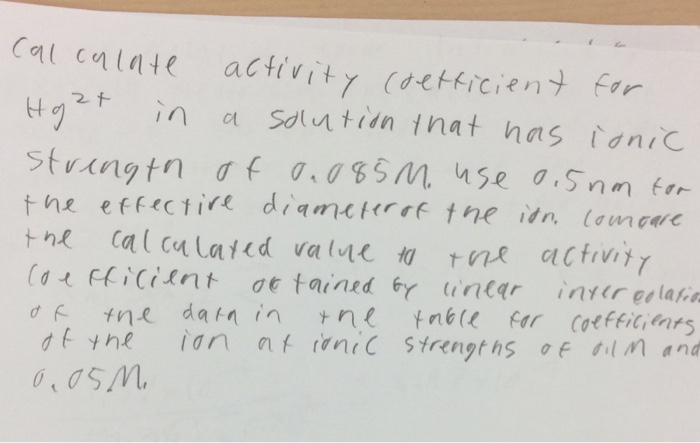 Calculate activity coefficient for
Hg2+ in a solution that has ionic
strength of 0.085M. use 0.5nm for
the effective diameter of the ion. Compare
the calculated value to the activity
coefficient obtained by linear interpolatio
of the data in the table for coefficients
of the ion at ionic strengths of 0.1M and
0.05M.